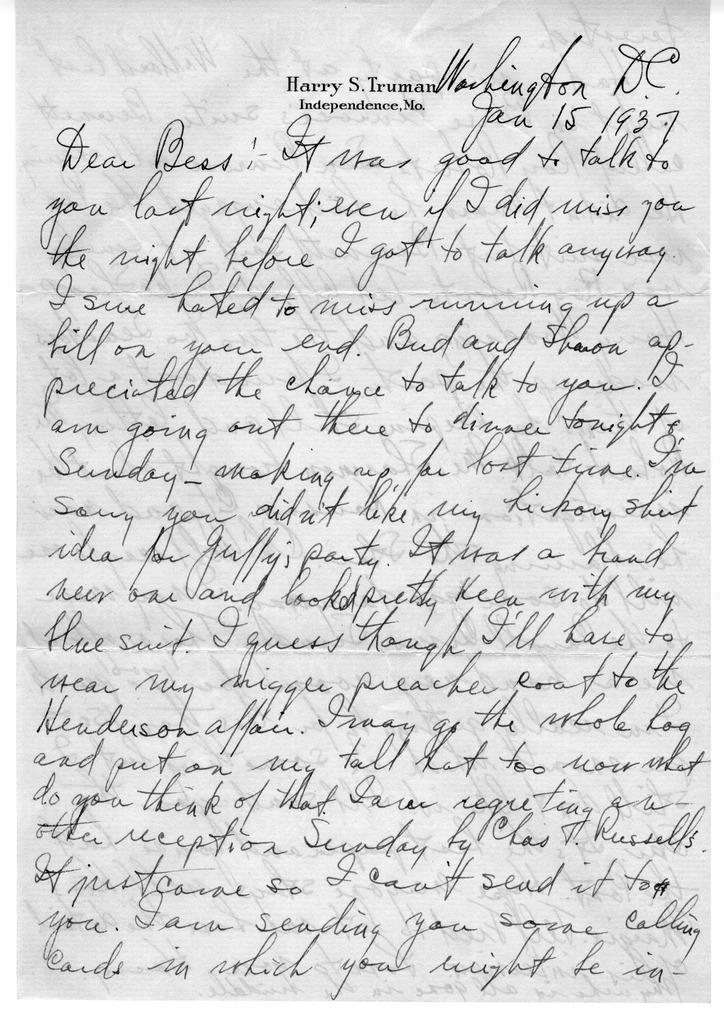 Harry S. Truman
Independence, Mo.
Washington D.C.
Jan 15 1937
Dear Bess:- It was good to talk to
you last night; even if I did miss you
the night before I got to talk anyway.
I sure hated to miss running up a
bill on your end. Bud and Sharon ap-
preciated the chance to talk to you. I
am going out there to dinner tonight &
Sunday - making up for lost time. I'm
sorry you didn't like my hickory shirt
idea for Guffy's party. It was a brand
new one and looked pretty keen with my
blue suit. I guess though I'll have to
wear my nigger preacher coat to the
Henderson affair. I may go the whole hog
and put on my tall hat too now what
do you think of that. I am regreting an-
other reception Sunday by Chas T. Russells.
It just came so I can't send it to
you. I am sending you some calling
cards in which you might be in-